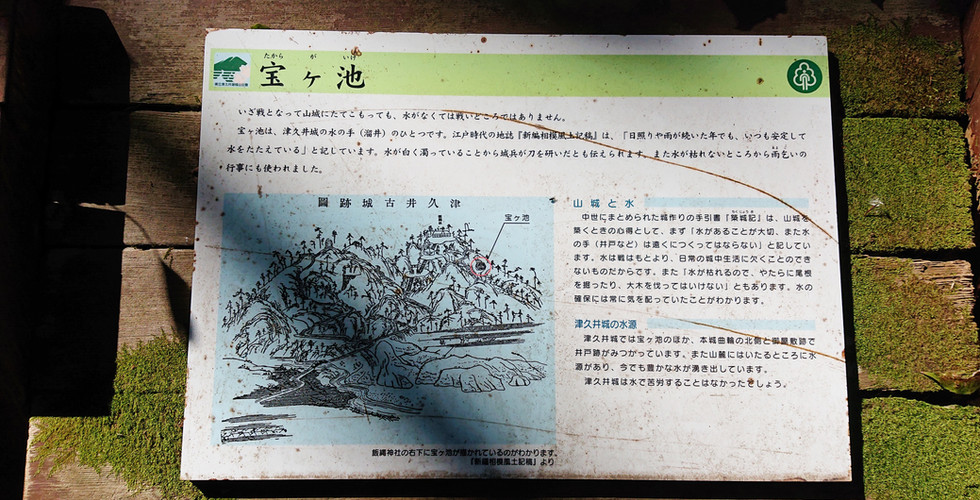 たから が いけ
宝ヶ池
いざ戦となって山城にたてこもっても、水がなくては戦いどころではありません。
宝ヶ池は、津久井城の水の手（溜井）のひとつです。江戸時代の地誌『新編相模風土記稿』は、「日照りや雨が続いた年でも、いつも安定して
水をたたえている」と記しています。水が白く濁っていることから城兵が刀を研いだとも伝えられます。また水が枯れないところから雨乞いの
行事にも使われました。
圖跡城古井久津
宝ヶ池
飯縄神社の右下に宝ヶ池が描かれているのがわかります。
『新編相模風土記稿』より
山城と水
中世にまとめられた城作りの手引書『築城記』は、山城を
築くときの心得として、まず「水があることが大切、また水
の手（井戸など）は遠くにつくってはならない」と記してい
ます。水は戦はもとより、日常の城中生活に欠くことのでき
ないものだからです。また「水が枯れるので、やたらに尾根
を掘ったり、大木を伐ってはいけない」ともあります。水の
確保には常に気を配っていたことがわかります。
津久井城の水源
津久井城では宝ヶ池のほか、本城曲輪の北側と御屋敷跡で
井戸跡がみつかっています。また山麓にはいたるところに水
源があり、今でも豊かな水が湧き出しています。
津久井城は水で苦労することはなかったでしょう。